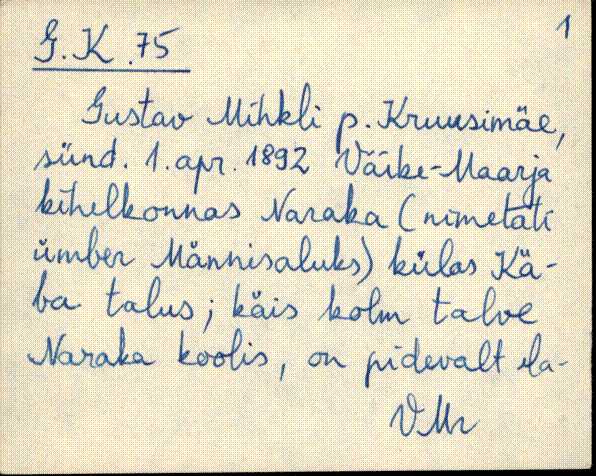 1
G.K.75
Gustav Mihkli p. Kruusimäe,
sünd. 1. apr. 1892 Väike-Maarja
kihelkonnas Naraka (nimetati
ümber Männisaluks) külas Kä-
ba talus; käis kolm talve
Naraka koolis, on pidevalt ela-
VMr